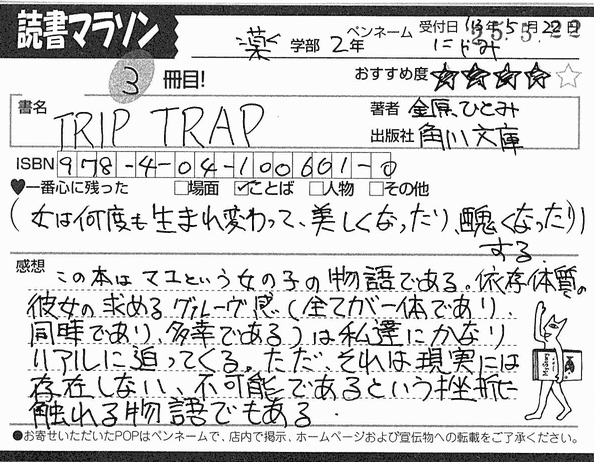 読書マラソン
薬 学部 2年
ペンネーム にゃみ
受付日 '13年5月22日
25.5.22
3 冊目!
おすすめ度 ★★★★☆
書名 TRIP TRAP
著者 金原ひとみ
出版社 角川文庫
ISBN 978-4-04-100601-0
♥一番心に残った □場面 ☑ことば □人物 □その他
(女は何度も生まれ変わって、美しくなったり、醜くなったり)
する。
感想
この本はマユという女の子の物語である。依存体質の
彼女の求めるグルーヴ感(全てが一体であり、
同時であり、多幸である)は私達にかなり
リアルに迫ってくる。ただ、それは現実には
存在しない、不可能であるという挫折に
触れる物語でもある.
●お寄せいただいたPOPはペンネームで、店内で掲示、ホームページおよび宣伝物への転載をご了承ください。